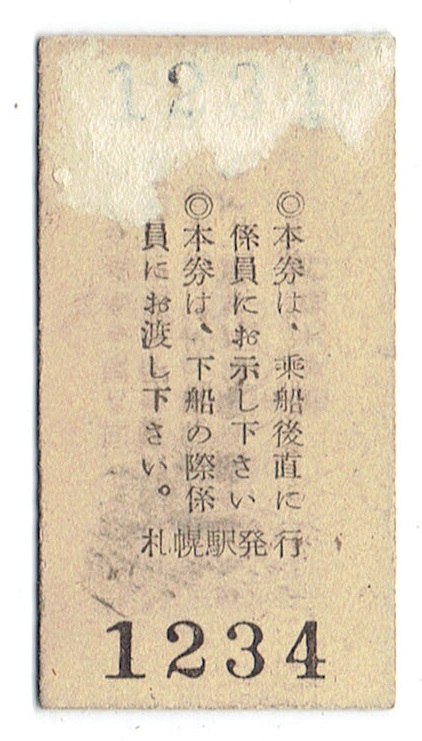 1234
◎本券は、乗船後直に
係員にお示し下さい
◎本券は、下船の際係
員にお渡し下さい。
札幌駅発行
1234